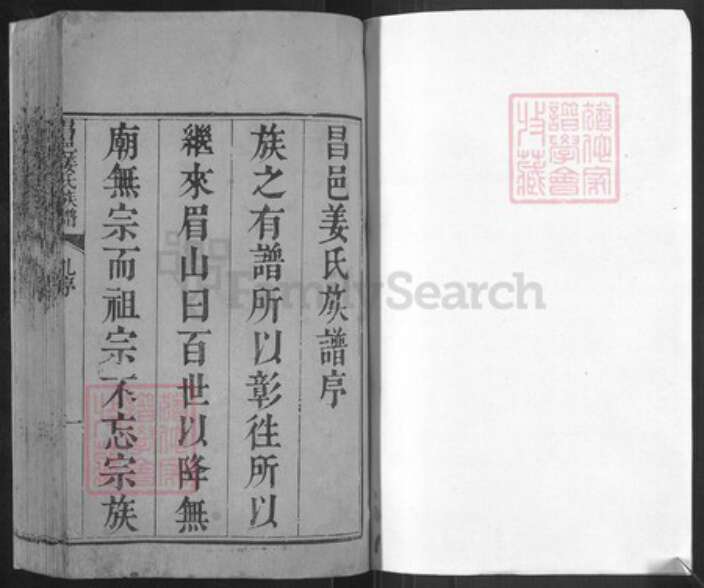 昌邑姜氏族譜序
族之有譜所以彰徃所以
繼來眉山曰百世以降無
廟無宗而祖宗不忘宗族
氏族譜
序
一
FamilySearch